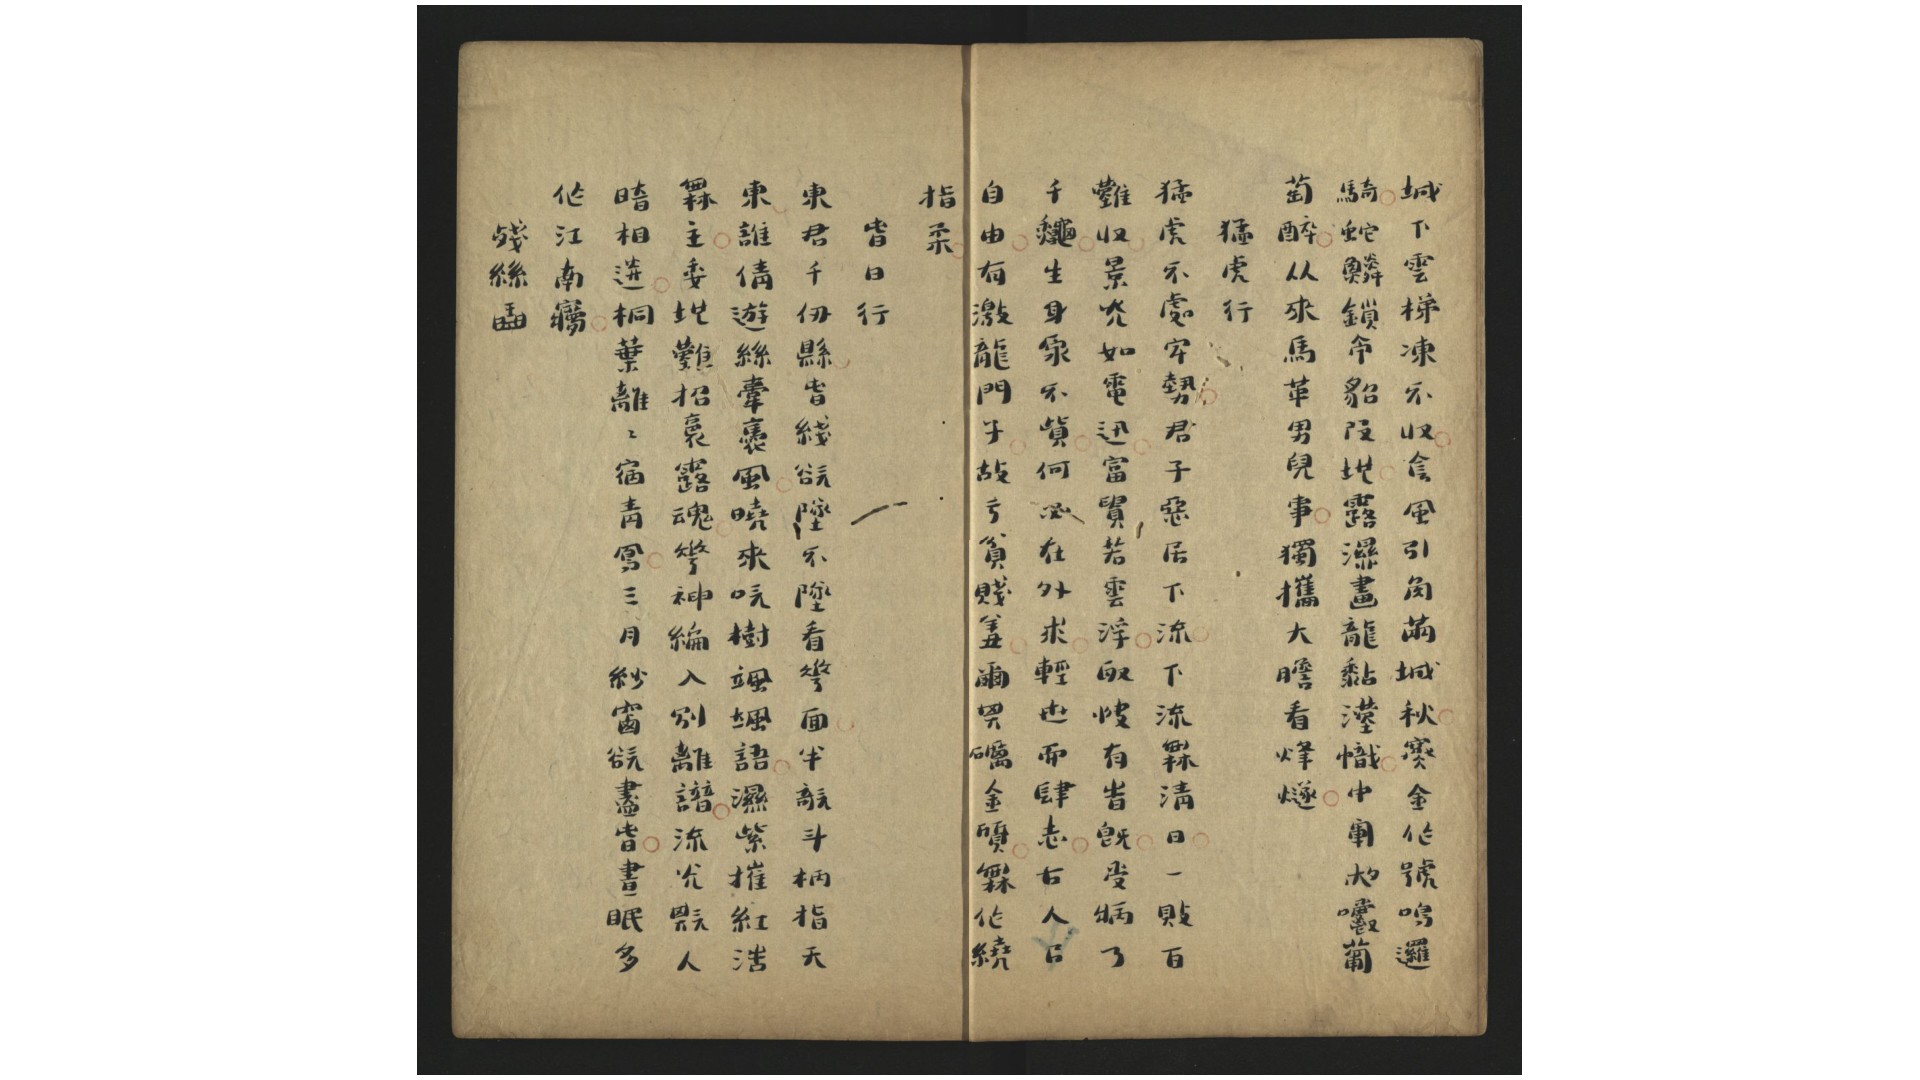 城下雲梯凍不收侌風引角滿城秋寶金作號鳴邏
騎蛇鱗鎖帘貂段地露濕畫龍黏溼幟中軍大嚼葡
萄醉从來馬革男兒事獨攜大膽看烽燧
猛虎行
猛虎不處牢勢君子惡居下流下流無清日一敗百
難收景光如電迅富貴若雲浮取快有時既受病乃
千龝生身象不貲何必在外求輕世而肆志古人曰
自由有激龍門子故亏貧賤羞爾胃礪金礩無作繞
指柔
旹日行
東君千仞縣旹綫欲墜不墜看琴面半敧斗柄指天
東誰倩遊絲牽裹風曉來吹樹颯颯語濕紫摧紅浩
無主委地難招裛露魂琴神編入別離譜流光與人
暗相送桐葉離〻宿青鳳三月紗窗欲盡旹晝眠多
作江南㝱
殘絲畾